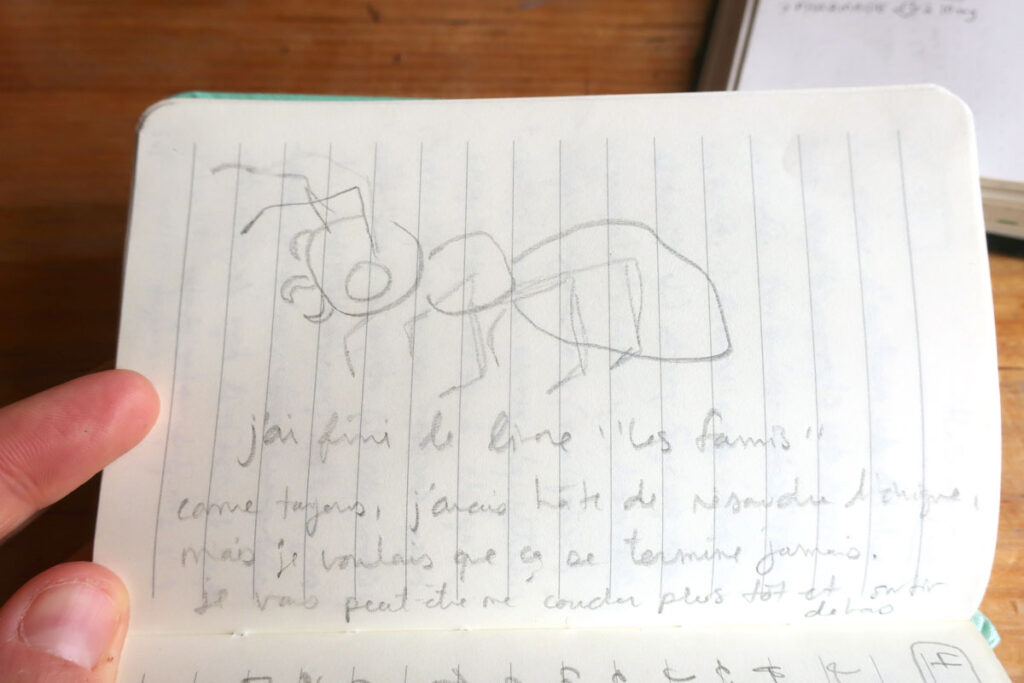 j'ai fini le livre "Les famis"
come toujours, j'avais hâte de résoudre l'énigme,
mais je voulais que ça se termine jamais.
je vais peut-être me coucher plus tôt et sortir
dehors